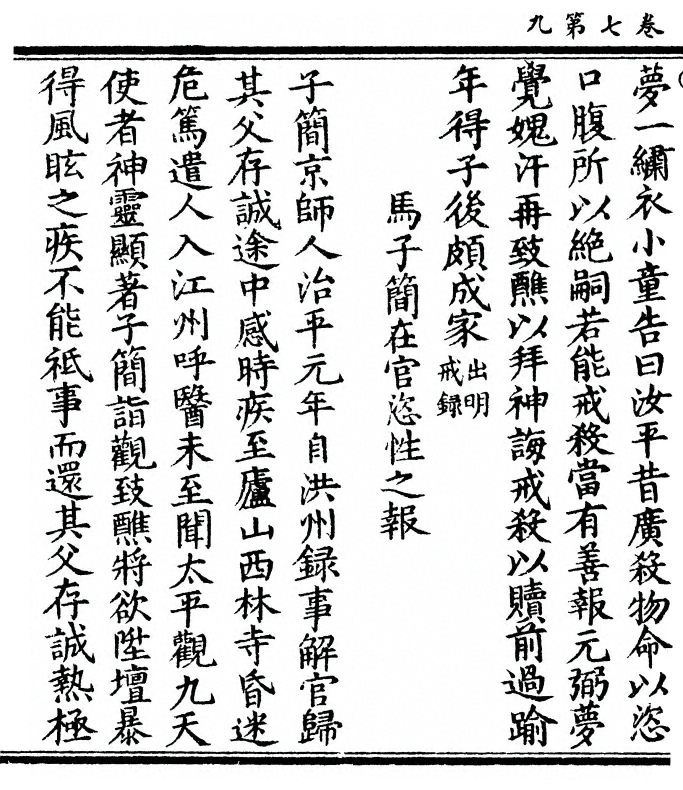 卷七第九
夢一繡衣小童告曰汝平昔廣殺物命以恣
口腹所以絶嗣若能戒殺當有善報元弼夢
覺媿汗再致醮以拜神誨戒殺以贖前過踰
年得子後頗成家出明戒録
馬子簡在官恣性之報
子簡京師人治平元年自洪州録事解官歸
其父存誠途中感時疾至廬山西林寺昏迷
危篤遣人入江州呼醫未至聞太平觀九天
使者神靈顯著子簡詣觀致醮將欲陞壇暴
得風眩之疾不能祗事而還其父存誠熱極